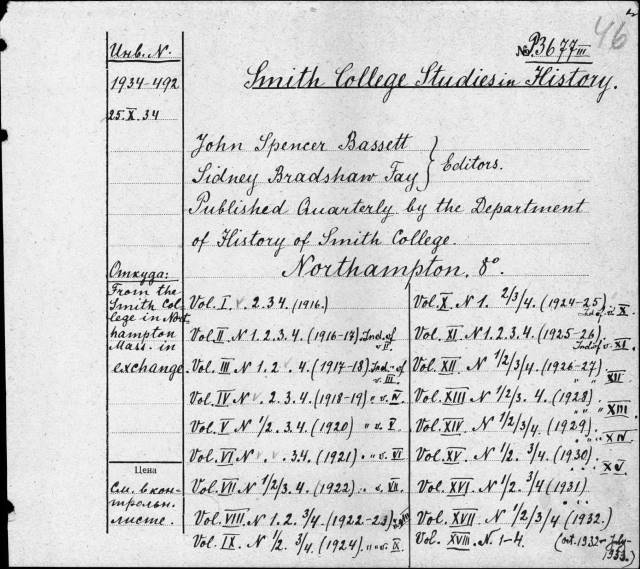 46
№ P.3677 III
Smith College Studies in History.
Инв. N.
1934-492
25.X.34
John Spencer Bassett
Sidney Bradshaw Fay } Editors.
Published Quarterly by the Department
of History of Smith College.
Northampton. 8°
Откуда:
From the
Smith Col-
lege in Nort
hampton
Mass. in
exchange
Цена
См. в кон-
трольн.
листе.
Vol. I v. 2. 3 4. (1916.)
Vol. II N 1. 2. 3. 4. (1916-17) Ind. of v. II.
Vol. III N 1. 2 v. 4. (1917-18) Ind. of v. III.
Vol. IV N v. 2. 3. 4. (1918-19) " v. IV
Vol. V N 1/2. 3. 4. (1920) " v. V
Vol. VI N v. v. 3. 4. (1921) " v. VI
Vol. VII N 1/2/3. 4. (1922) " v. VII.
Vol. VIII N 1. 2. 3/4. (1922-23)
Vol. IX N 1/2. 3/4. (1924) " v. IX.
Vol. X. N 1. 2/3/4. (1924-25) Ind. of v. X.
Vol. XI N 1. 2. 3. 4. (1925-26) Ind. of v. XI.
Vol. XII N 1/2/3/4. (1926-27) " " XII
Vol. XIII N 1/2/3. 4. (1928) " " XIII
Vol. XIV N 1/2/3/4. (1929) " " XIV
Vol. XV. N 1/2. 3/4. (1930) " " XV
Vol. XVI. N 1/2. 3/4 (1931)
Vol. XVII N 1/2/3/4 (1932.)
Vol. XVIII N. 1-4 (Oct. 1932- July 1933.)